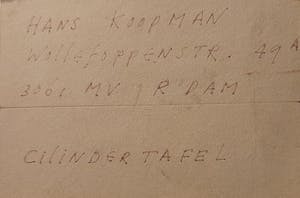 HANS KOOPMAN
Wollefoppenstr. 49 A
3061 MV R'DAM
CILINDERTAFEL